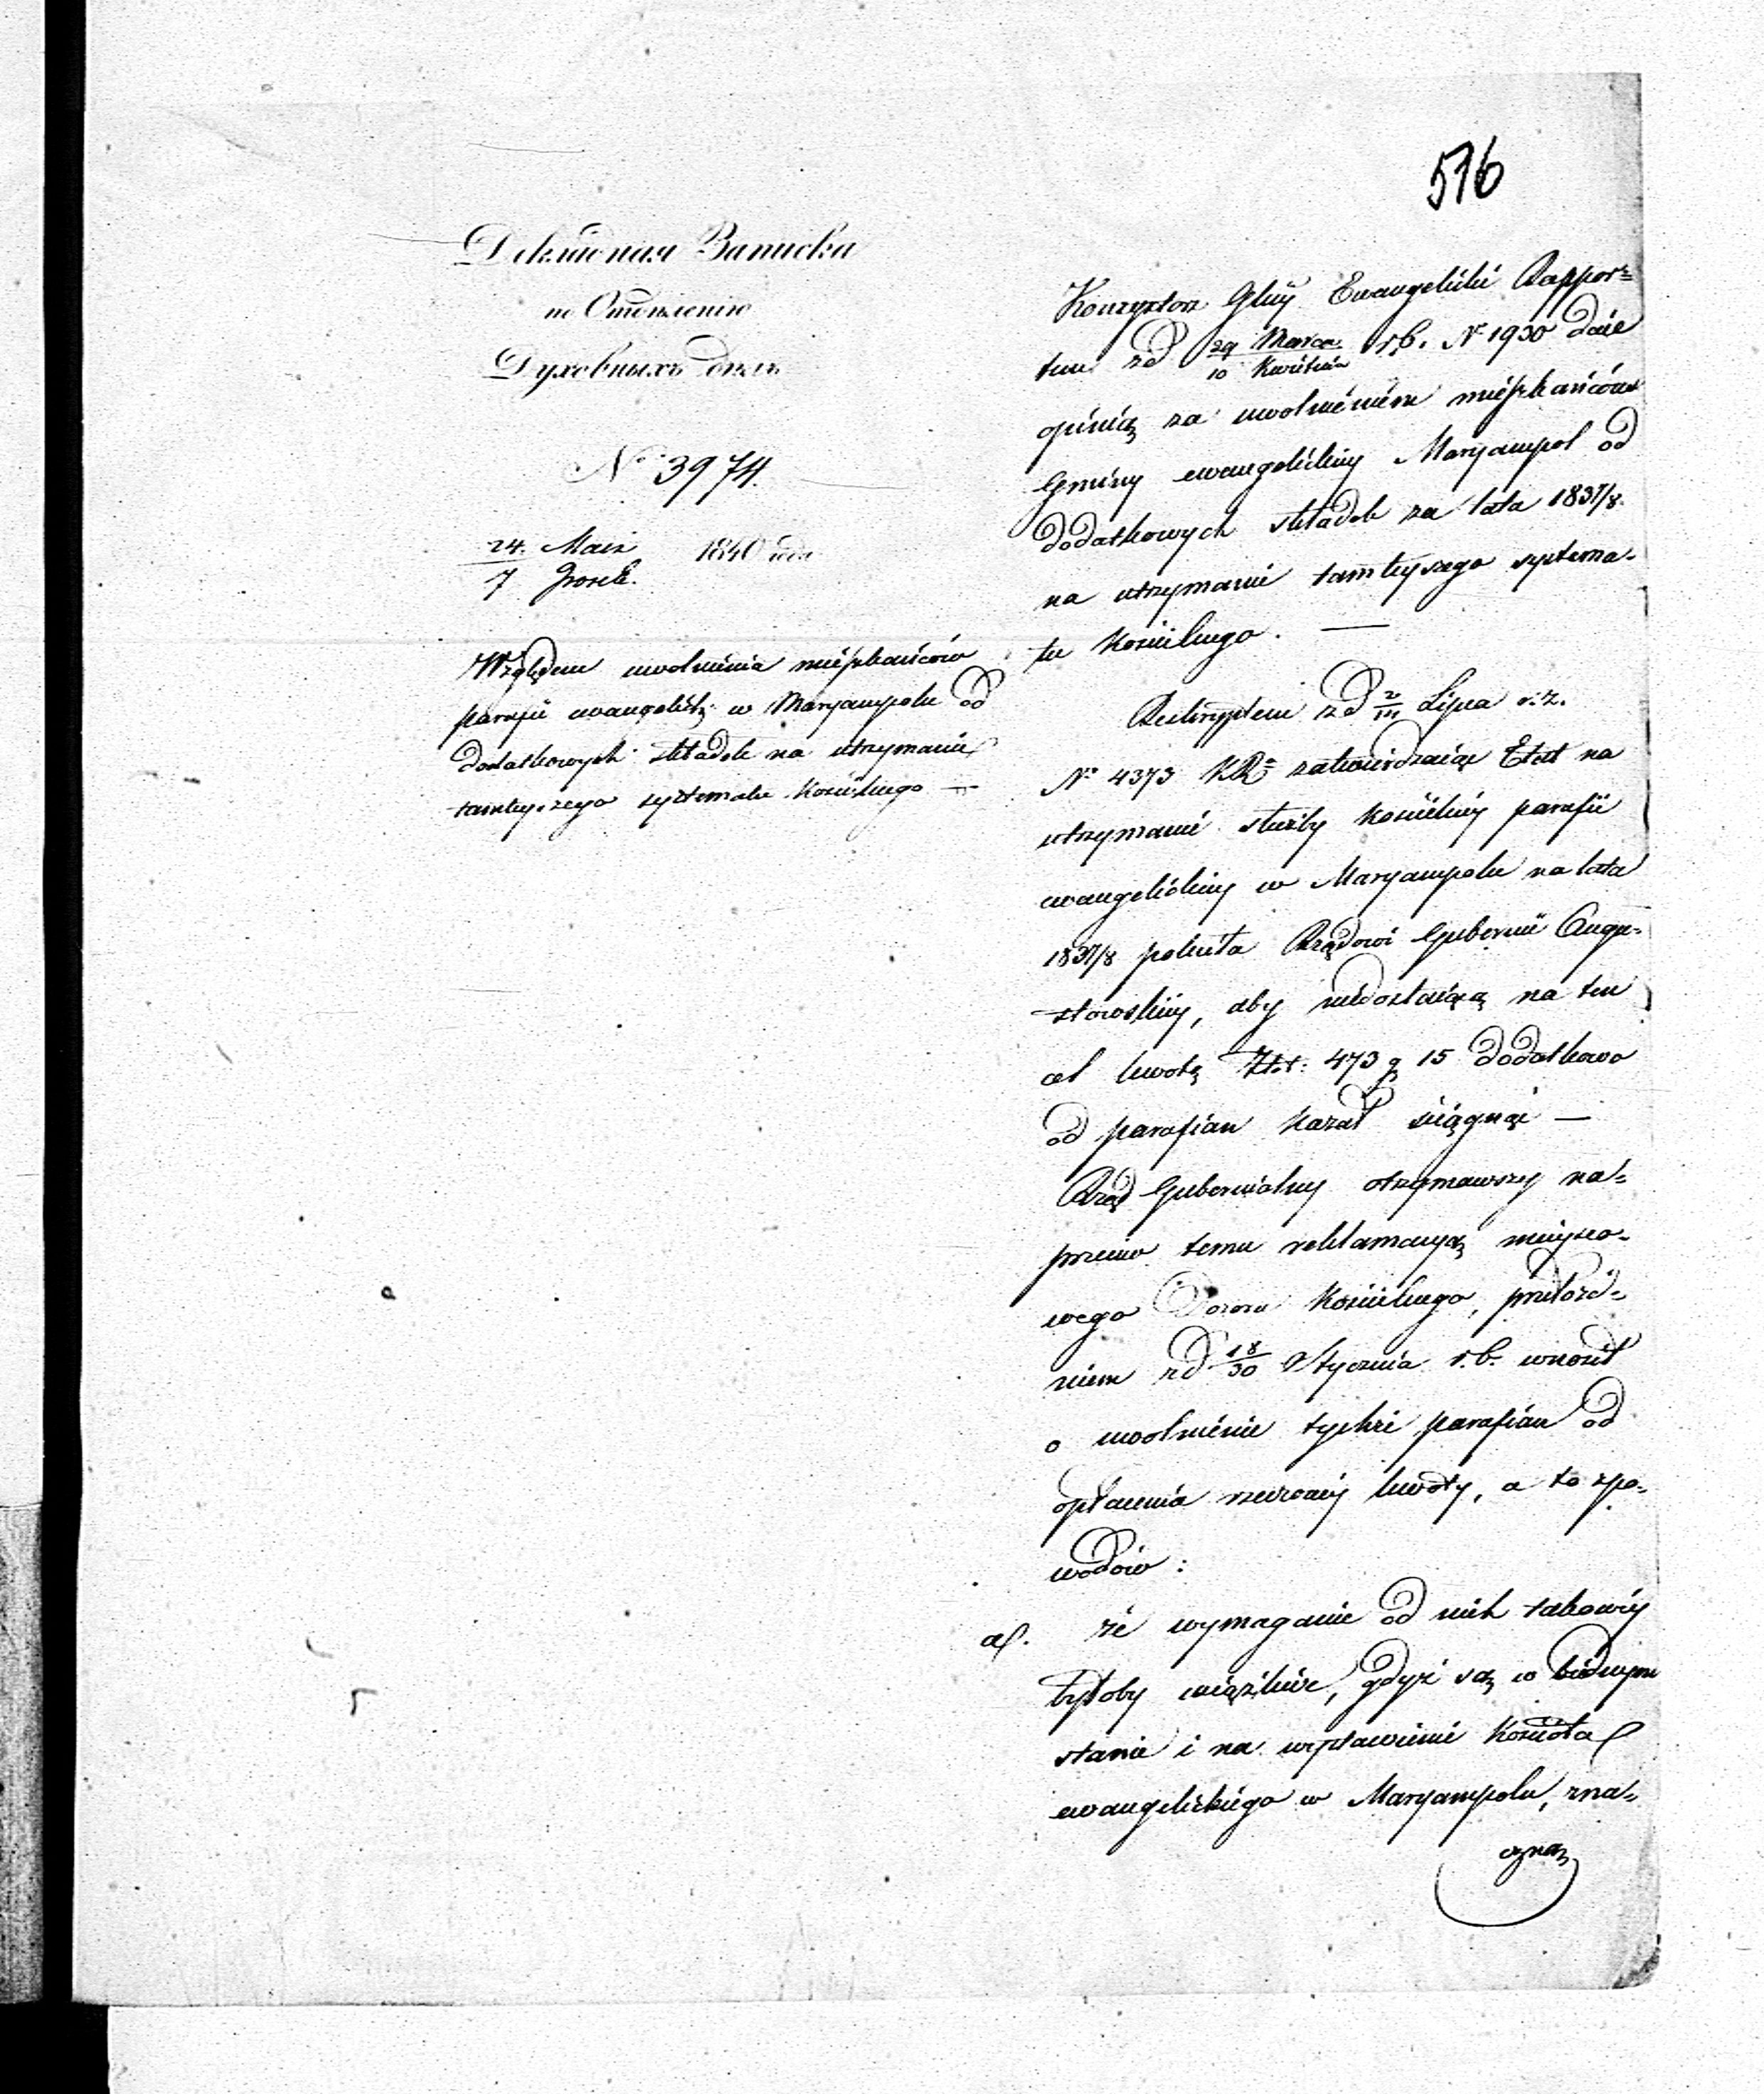 516
Докладная Записка
по Отделенію
Духовныхъ дѣлъ
№ 3974.
24. Maia 1840 года
7 Czerwca.
Względem uwolnienia mieszkańców
parafii ewangelick: w Maryampolu od
dodatkowych składek na utrzymanie
tamteyszego systematu kościelnego —
Konzystorz Glny Ewangelicki Rappor=
tem z d 29 Marca / 10 Kwietnia r.b. Nr 1930 daie
opinią za uwolnieniem mieszkańców
Gminy ewangelickiey Maryampol od
dodatkowych składek za lata 1837/8.
na utrzymanie tamteyszego systema-
tu kościelnego. —
Reskryptem z d 2/14 Lipca r. z.
No 4373 KR. zatwierdzaiąc Etat na
utrzymanie służby kościelney parafii
ewangelickiey w Maryampolu na lata
1837/8 poleciła Rządowi Gubernii Augu-
stowskiey, aby niedostaiącą na ten
cel kwotę Złot: 473 g 15 dodatkowo
od parafian kazał ściągnąć —
Rząd Gubernialny otrzymawszy na=
przeciw temu reklamacyą mieysco-
wego Dozoru kościelnego, przełoże-
niem z d 18/30 Stycznia r. b. wnosił
o uwolnienie tychże parafian od
opłacenia rzeczoney kwoty, a to z po-
wodów:
a). że wymaganie od nich takowey
byłoby uciążliwe, gdyż są w biednym
stanie i na wystawienie kościoła
ewangelickiego w Maryampolu, zna=
czną